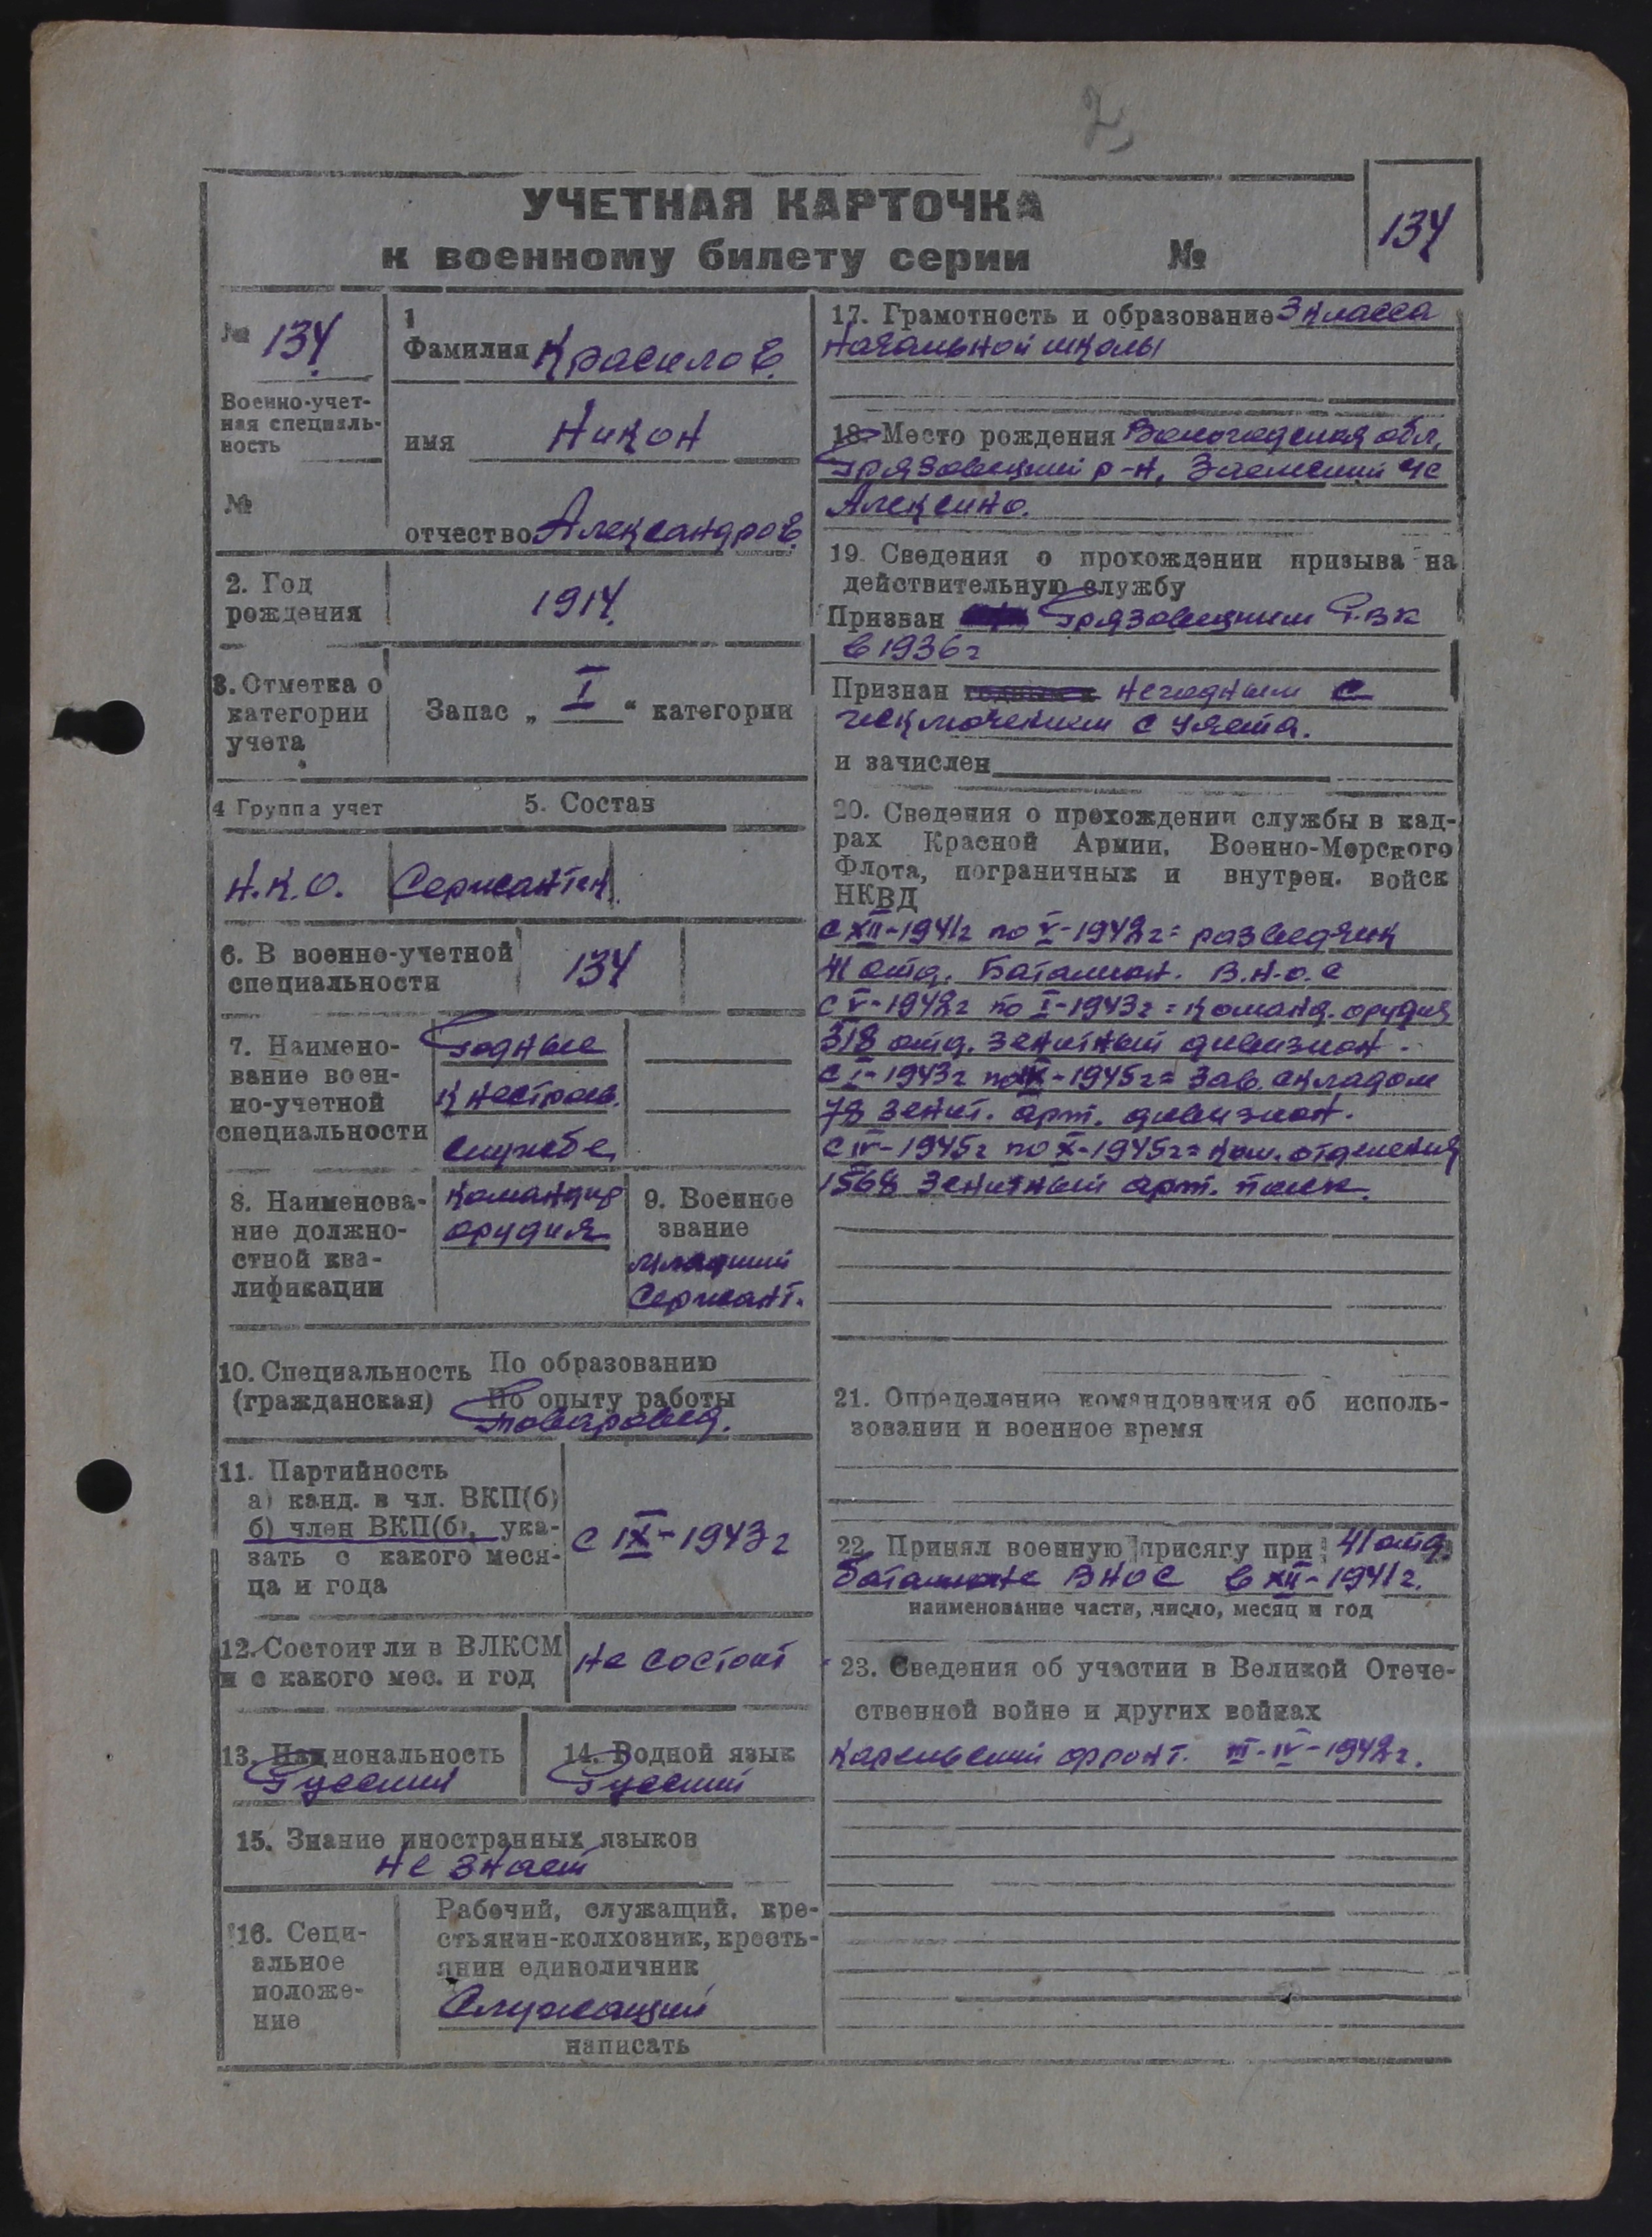 2
УЧЕТНАЯ КАРТОЧКА
к военному билету серии №
134
№ 134
Военно-учет-
ная специаль-
ность
№
1
Фамилия Красилов.
имя Никон
отчество Александров.
2. Год
рождения
1914.
3. Отметка о
категории
учета
Запас „ I “ категории
4 Группа учет
5. Состав
Н.К.О.
Сержантск.
6. В военно-учетной
специальности
134
7. Наимено-
вание воен-
но-учетной
специальности
Годные
к нестроев.
службе,
8. Наименова-
ние должно-
стной ква-
лификации
Командир
орудия
9. Военное
звание
младший
Сержант.
10. Специальность
(гражданская)
По образованию
По опыту работы
Товаровед.
11. Партийность
а) канд. в чл. ВКП(б)
б) член ВКП(б), ука-
зать с какого меся-
ца и года
с IX-1943г
12. Состоит ли в ВЛКСМ
и с какого мес. и год
Не состоит
13. Национальность
Русский
14. Родной язык
Русский
15. Знание иностранных языков
не знает
16. Соци-
альное
положе-
ние
Рабочий, служащий, кре-
стьянин-колхозник, кресть-
янин единоличник
Служащий
написать
17. Грамотность и образование 3 класса
Начальной школы
18. Место рождения Вологодская обл,
Грязовецкий р-н,
Алексино.
19. Сведения о прохождении призыва на
действительную службу
Призван Грязовецким Р.ВК
в 1936г
Признан негодным с
исключением с учета.
и зачислен
20. Сведения о прохождении службы в кад-
рах Красной Армии, Военно-Морского
Флота, пограничных и внутрен. войск
НКВД
с XII-1941г по V-1942г = разведчик
41 отд. Баталион. В.Н.О.С
с V-1942г по I-1943г = Команд. орудия
318 отд. зенитный дивизион.
с I-1943г по -1945г = Зав. складом
78 зенит. арт. дивизион.
с IV-1945г по X-1945г = Ком. отделения
1568 Зенитный арт. полк.
21. Определение командования об исполь-
зовании и военное время
22. Принял военную присягу при 41 отд.
баталионе ВНОС в XII-1941г.
наименование части, число, месяц и год
23. Сведения об участии в Великой Отече-
ственной войне и других войнах
Карельский фронт. III-IV-1942г.